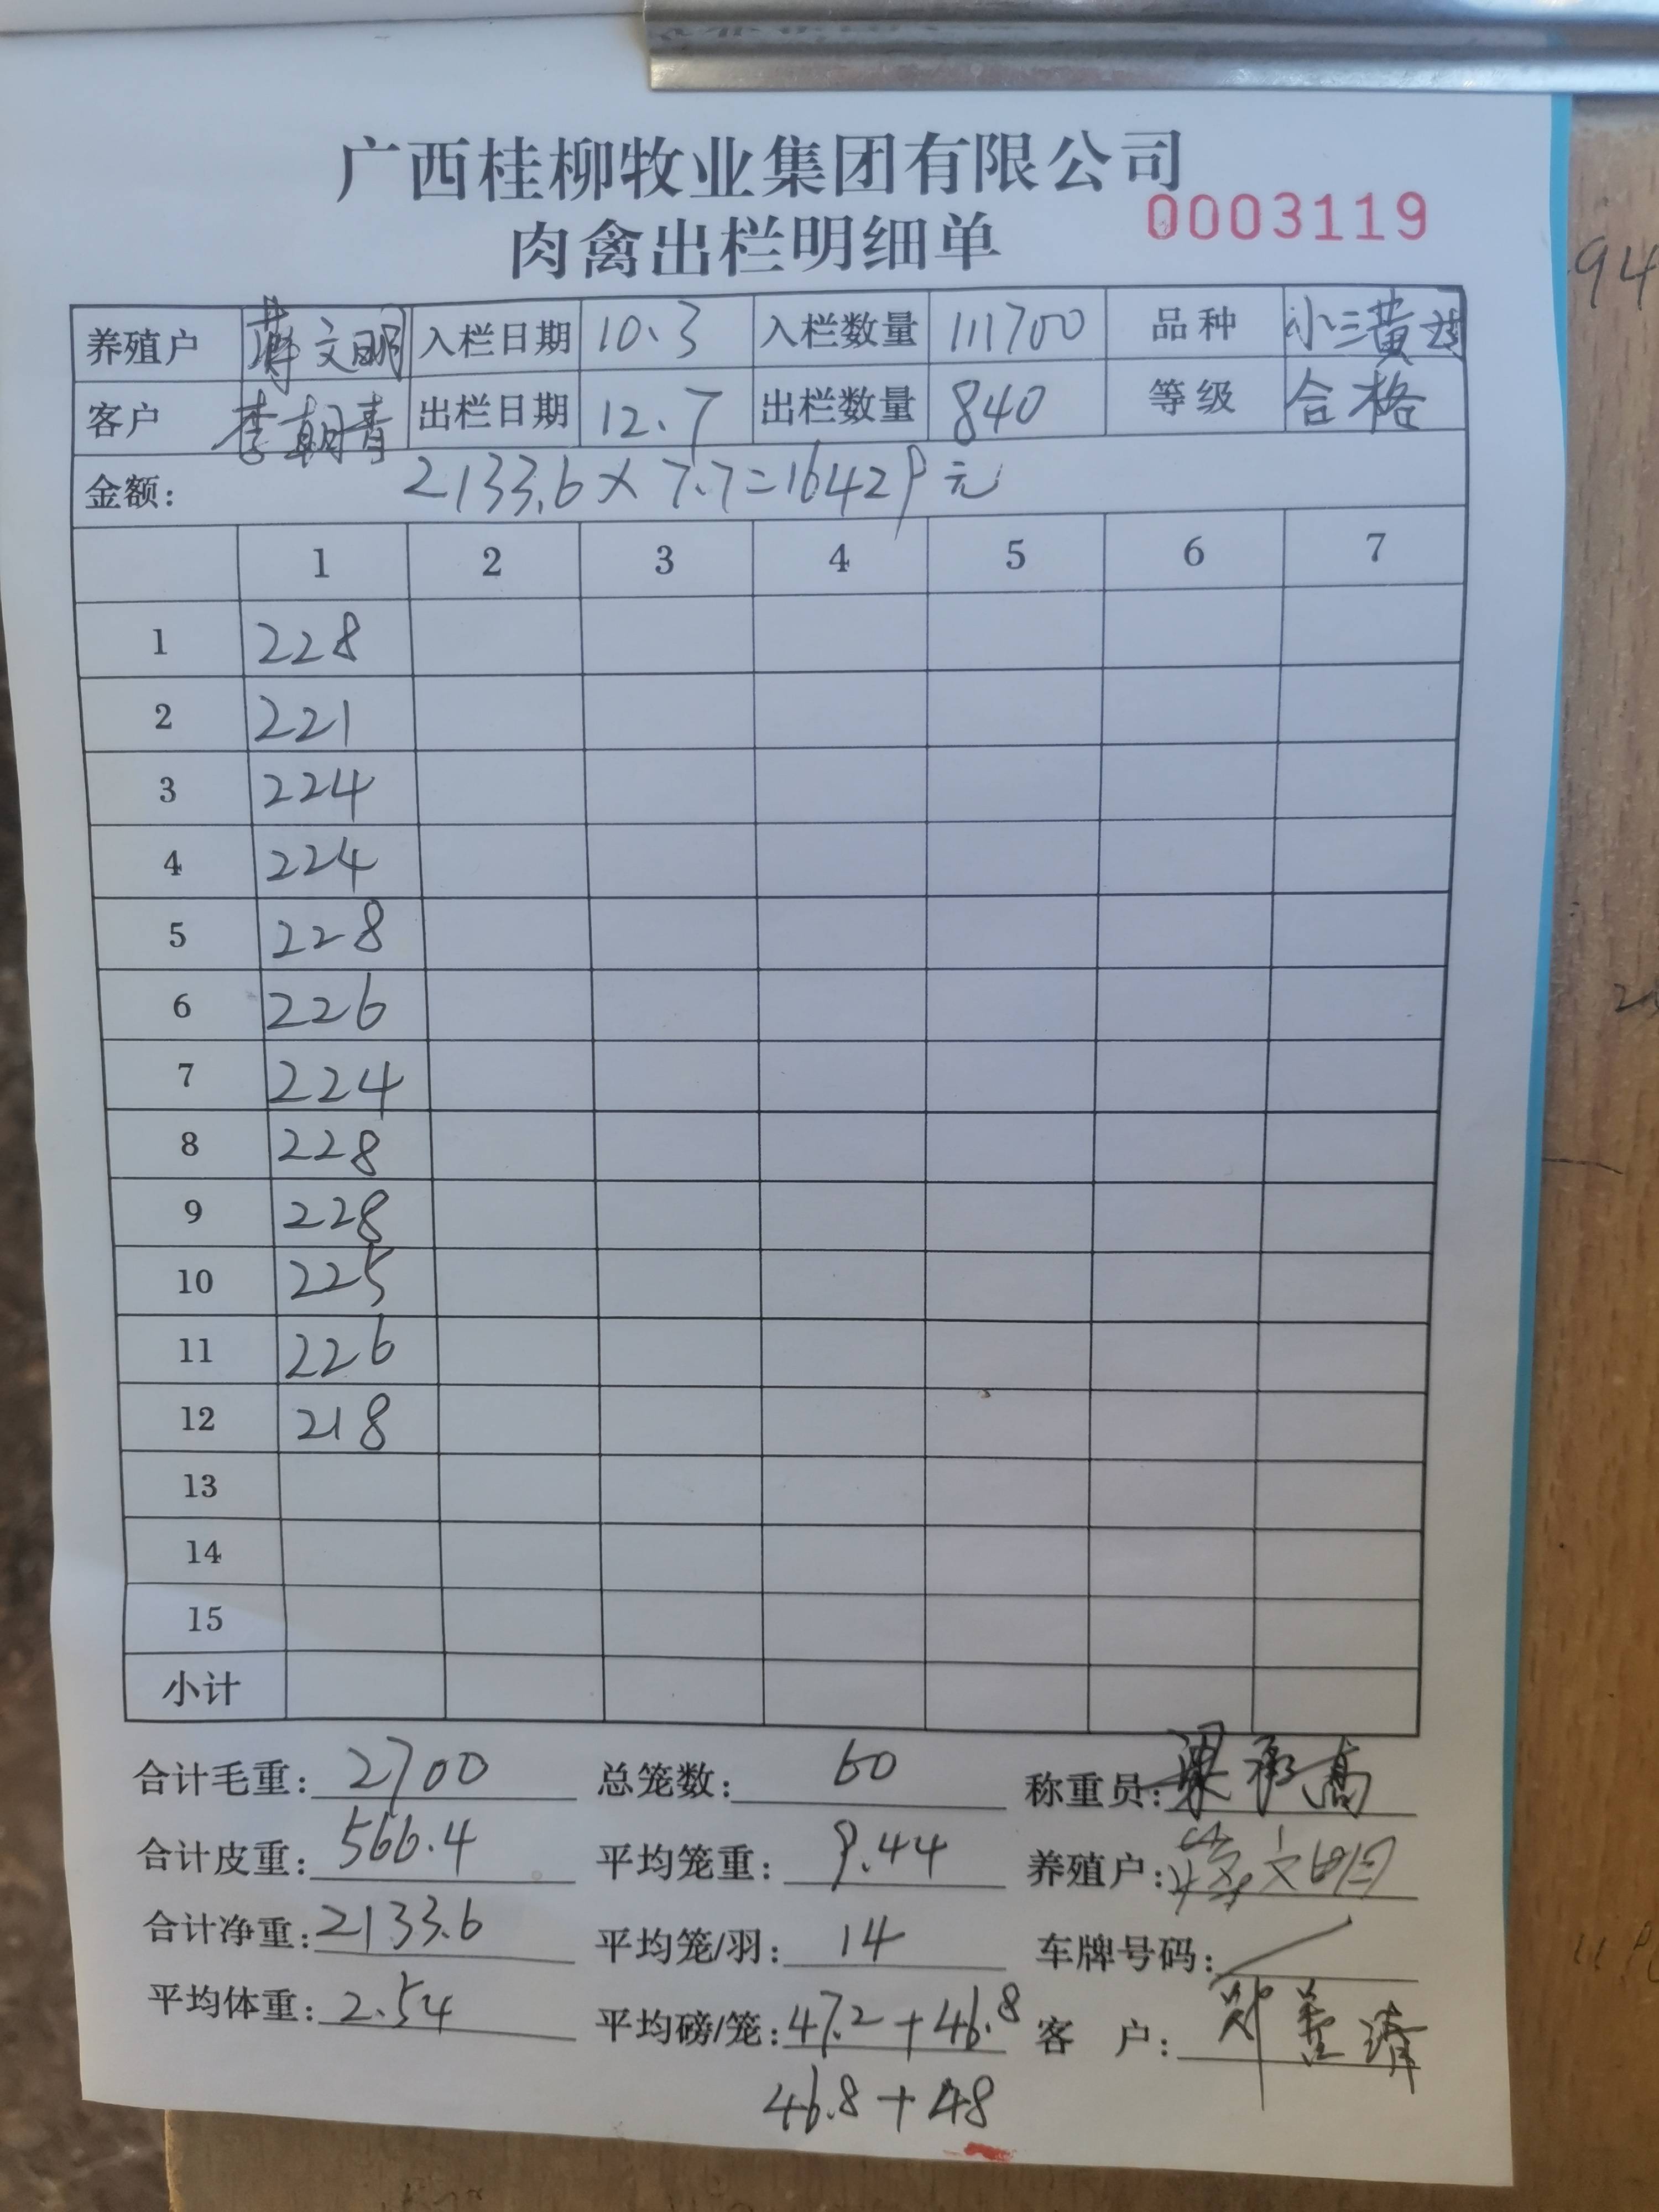 广西桂柳牧业集团有限公司
肉禽出栏明细单 0003119
养殖户 蒋文明 入栏日期 10.3 入栏数量 111700 品种 小三黄
客户 李朝青 出栏日期 12.7 出栏数量 840 等级 合格
金额: 2133.6×7.7=16429元
1 2 3 4 5 6 7
1 228
2 221
3 224
4 224
5 228
6 226
7 224
8 228
9 228
10 225
11 226
12 218
13
14
15
小计
合计毛重: 2700 总笼数: 60 称重员: 梁承高
合计皮重: 566.4 平均笼重: 9.44 养殖户:
合计净重: 2133.6 平均笼/羽: 14 车牌号码: /
平均体重: 2.54 平均磅/笼: 47.2+46.8 客 户:
46.8+48
94